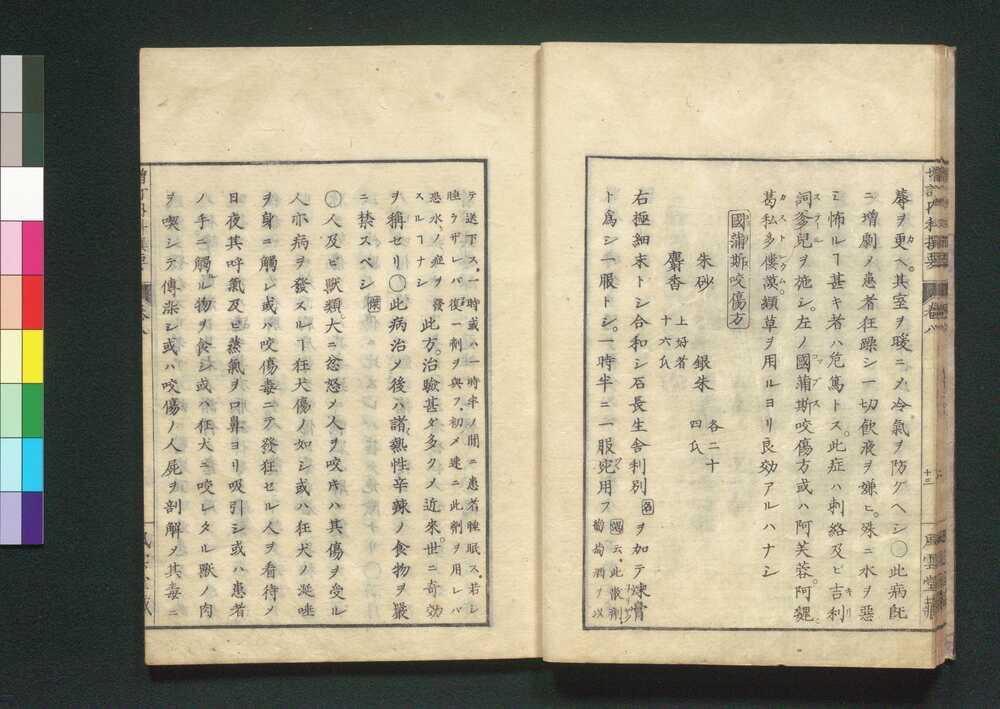 蓐ヲ更ヘ。其室ヲ暖ニシ冷氣ヲ防グヘシ〇此病既
ニ増劇ノ患者狂躁シ一切飲液ヲ嫌ヒ。殊ニ水ヲ惡
ミ怖ルヿ甚キ者ハ危篤トス。此症ハ刺絡及ビ吉利
詞爹兒ヲ施シ。左ノ國蒲斯咬傷方或ハ阿芙蓉。阿魏
葛私多僂謨纈草ヲ用ルヨリ良効アルハナシ
國蒲斯咬傷方
朱砂 銀朱 各二十四氏
麝香 上好者十六氏
右極細末トシ合和シ石長生舎利別 名 ヲ加テ煉膏
ト爲シ一服トシ。一時半ニ一服兜用フ 云。此散劑葡萄酒ヲ以
テ送下ス。一時或ハ一時半ノ間ニ患者睡眠ス。若シ
睡ラザレバ復一劑ヲ與フ。初メ速ニ此劑ヲ用レバ
恐水ノ症ヲ發スルヿナシ 此方。治驗甚ダ多クメ近來。世ニ奇効
ヲ稱セリ〇此病治メ後ハ諸熱性辛辣ノ食物ヲ嚴
ニ禁スベシ
〇人及ビ獸類。大ニ忿怒メ人ヲ咬メハ其傷ヲ受ル
人亦病ヲ發スルヿ狂犬傷ノ如シ或ハ狂犬ノ涎唾
ヲ身ニ觸レ或ハ咬傷毒ニテ發狂セル人ヲ看待メ
日夜其呼氣及ヒ蒸氣ヲ口鼻ヨリ吸引シ或ハ患者
ノ手ニ觸ルヽ物ヲ食シ或ハ狂犬ニ咬レタル獸ノ肉
ヲ喫シテ傳染シ或ハ咬傷ノ人屍ヲ剖解メ其毒ニ